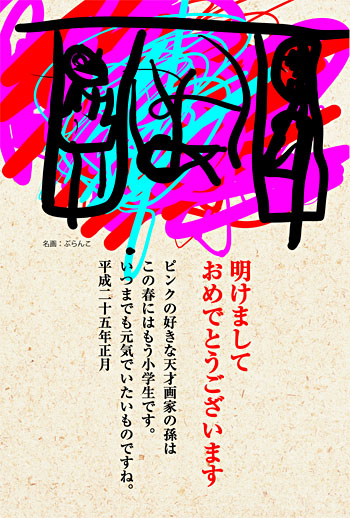 名画：ぶらんこ
明けまして
おめでとうございます
ピンクの好きな天才画家の孫は
この春にはもう小学生です。
いつまでも元気でいたいものですね。
平成二十五年正月